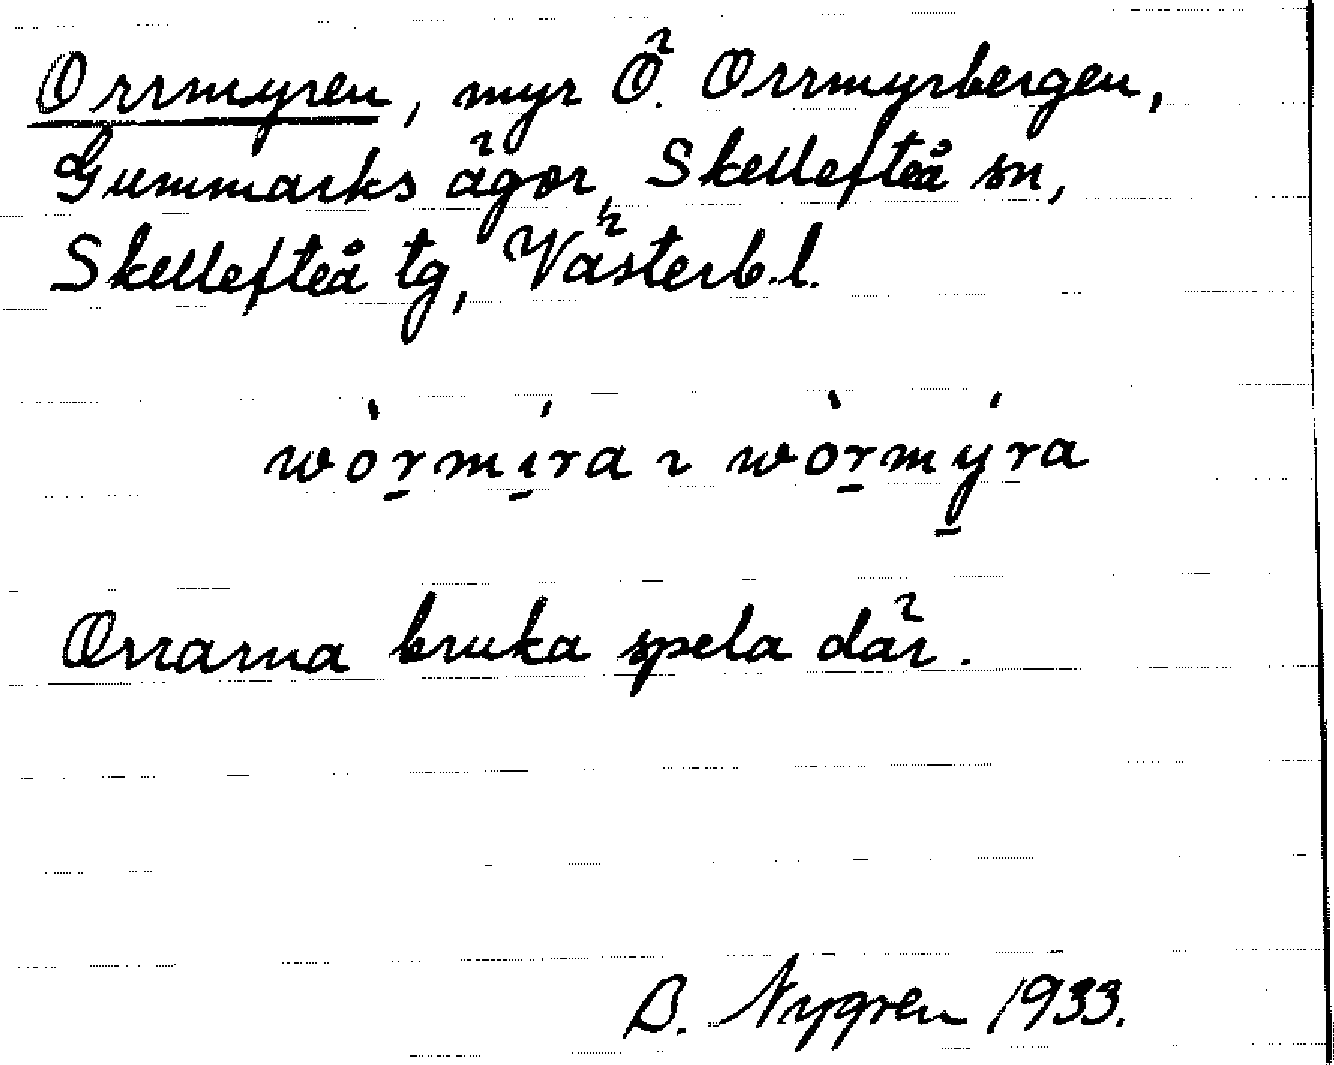 Orrmyren, myr Ö. Orrmyrbergen,
Gummarks ägor, Skellefteå sn,
Skellefteå tg, Västerb.l.
wòr̠mí̠ra ~ wòr̠mý̠ra
Orrarna bruka spela där.
B. Nygren 1933.